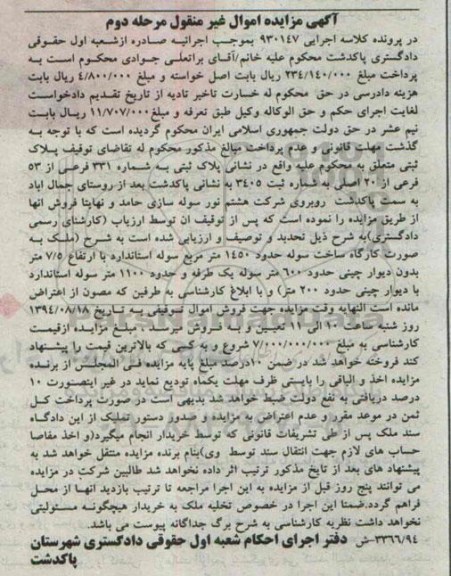 آگهی مزایده اموال غیر منقول مرحله دوم
در پرونده کلاسه اجرایی ۹۳۰۱۴۷ بموجب اجرائیه صادره ازشعبه اول حقوقی
دادگستری پاکدشت محکوم علیه خانم/آقای براتعلی جوادی محکوم است به
پرداخت مبلغ ۲۳۴/۱۴۰/۰۰۰ ریال بابت اصل خواسته و مبلغ ۴/۸۰۰/۰۰۰ ریال بابت
هزینه دادرسی در حق محکوم له خسارت تاخیر تادیه از تاریخ تقدیم دادخواست
لغایت اجرای حکم و حق الوکاله وکیل طبق تعرفه و مبلغ ۱۱/۷۰۷/۰۰۰ ریال بابت
نیم عشر در حق دولت جمهوری اسلامی ایران محکوم گردیده است که با توجه به
گذشت مهلت قانونی و عدم پرداخت مبالغ مذکور محکوم له تقاضای توقیف پلاک
ثبتی متعلق به محکوم علیه واقع در نشانی پلاک ثبتی به شماره ۳۳۱ فرعی از ۵۳
فرعی از ۲۰ اصلی به شماره ثبت ۳۴۰۵ به نشانی پاکدشت بعد از روستای جمال اباد
به سمت پاکدشت روبروی شرکت هشتم نور سوله سازی حامد و نهایتا فروش انها
از طریق مزایده را نموده است که پس از توقیف ان توسط ارزیاب (کارشناس رسمی
دادگستری)به شرح ذیل تحدید و توصیف و ارزیابی شده است به شرح (ملک به
صورت کارگاه ساخت سوله حدود ۱۴۵۰ متر مربع سوله استاندارد با ارتفاع ۷/۵ متر
بدون دیوار چینی حدود ۶۰۰ متر سوله یک طرفه و حدود ۱۱۰۰ متر سوله استاندارد
با دیوار چینی حدود ۲۰۰ متر) و با ابلاغ کارشناسی به طرفین که مصون از اعتراض
مانده است النهایه وقت مزایده جهت فروش اموال توقیفی به تاریخ ۱۳۹۴/۰۸/۱۸
روز شنبه ساعت ۱۰ الی ۱۱ تعیین و به فروش میرسد . مبلغ مزایده ازقیمت
کارشناسی به مبلغ ۷/۰۰۰/۰۰۰/۰۰۰ شروع و به کسی که بالاترین قیمت را پیشنهاد
کند فروخته خواهد شد در ضمن ۱۰درصد مبلغ پایه مزایده فی المجلس از برنده
مزایده اخذ و الباقی را بایستی ظرف مهلت یکماه تودیع نماید در غیر اینصورت ۱۰
درصد دریافتی به نفع دولت ضبط خواهد شد بدیهی است در صورت پرداخت کل
ثمن در موعد مقررو عدم اعتراض به مزایده و صدور دستور تملیک از این دادگاه
سند ملک پس از طی تشریفات قانونی که توسط خریدار انجام میگیرد(و اخذ مفاصا
حساب های لازم جهت انتقال سند توسط وی)بنام برنده مزایده منتقل خواهد شد به
پیشنهاد های بعد از تایخ مذکور ترتیب اثر داده نخواهد شد طالبین شرکت در مزایده
می توانند پنج روز قبل از مزایده به این اجرا مراجعه تا ترتیب بازدید انها از محل
فراهم گردد.ضمنا این اجرا در خصوص تخلیه ملک به خریدار هیچگونه مسئولیتی
نخواهد داشت نظریه کارشناسی به شرح برگ جداگانه پیوست می باشد.
۳۳۶۶/۹۴-ش دفتر اجرای احکام شعبه اول حقوقی دادگستری شهرستان
پاکدشت